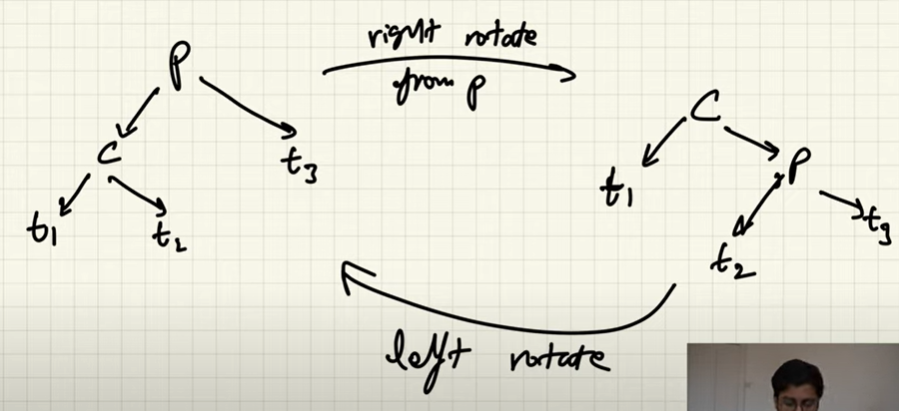 P
C
t3
t1
t2
right rotate
from p
C
t1
P
t2
t3
left rotate